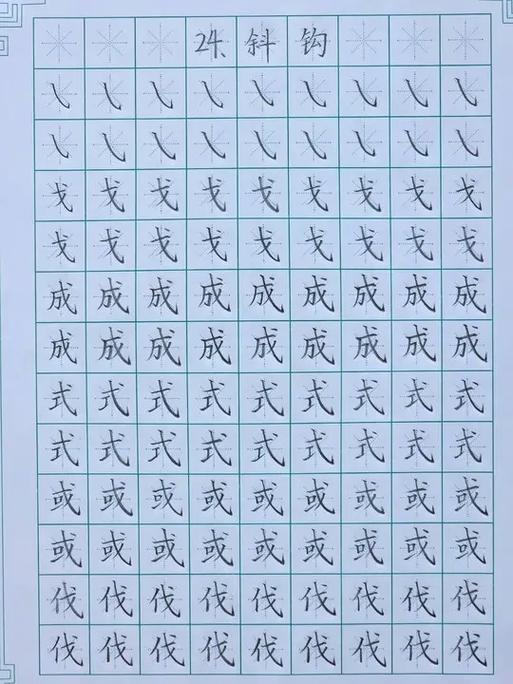 24、斜钩
㇂㇂㇂㇂㇂㇂㇂㇂㇂
㇂㇂㇂㇂㇂㇂㇂㇂㇂
戈戈戈戈戈戈戈戈戈
戈戈戈戈戈戈戈戈戈
成成成成成成成成成
成成成成成成成成成
式式式式式式式式式
式式式式式式式式式
或或或或或或或或或
或或或或或或或或或
伐伐伐伐伐伐伐伐伐
伐伐伐伐伐伐伐伐伐